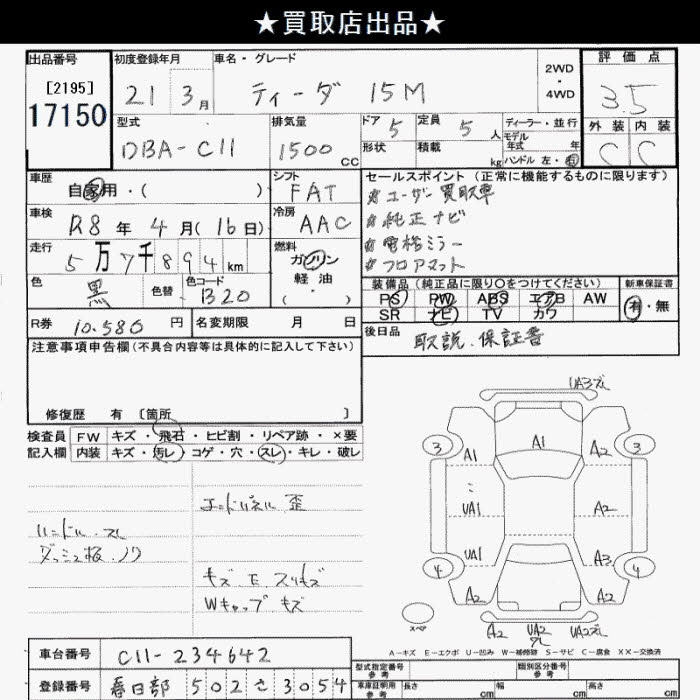 ★買取店出品★
出品番号 初度登録年月 車名・グレード 2WD・4WD 評価点
[2195] 17150 21 3月 ティーダ 15M 3.5
型式 排気量 ドア 5 定員 5人 ディーラー・並行 外装 内装
DBA-C11 1500cc 形状 積載 kg モデル年式 年 C C
ハンドル 左・右
車歴 シフト セールスポイント(正常に機能するものに限ります)
自家用・( ) FAT #ユーザー買取車
車検 R8年4月(16日) 冷房 AAC #純正ナビ
走行 5万7千894km 燃料 ガソリン #電格ミラー
軽油 (・) #フロアマット
色 黒 色替 色コード B20 装備品(純正品に限り○をつけてください) 新車保証書
PS PW ABS エアB AW 有・無
SR ナビ TV カワ
R券 10.580円 名変期限 月 日 後日品 取説.保証書
注意事項申告欄(不具合内容等は具体的に記入して下さい)
修復歴 有 [箇所 ]
検査員記入欄 FW キズ・飛石・ヒビ割・リペア跡・×要
内装 キズ・汚レ・コゲ・穴・スレ・キレ・破レ
エンドパネル 歪
ハンドル.スレ
ダッシュ板.ノリ
キズ.E.スリキズ
Wキャップ キズ
UA3ズレ
3 A1 A1 A2 3
UA1 A2
UA1 A3
4 A2 A2 4
スペア A2 UA2 ズレ UA2ズレ
A-キズ E-エクボ U-凹み W-補修跡 S-サビ C-腐食 XX-交換済
車台番号 C11-234642 型式指定番号 参考 類別区分番号 参考
登録番号 春日部 502 さ 3054 車庫証明用 参考 長さ cm 幅 cm 高さ cm